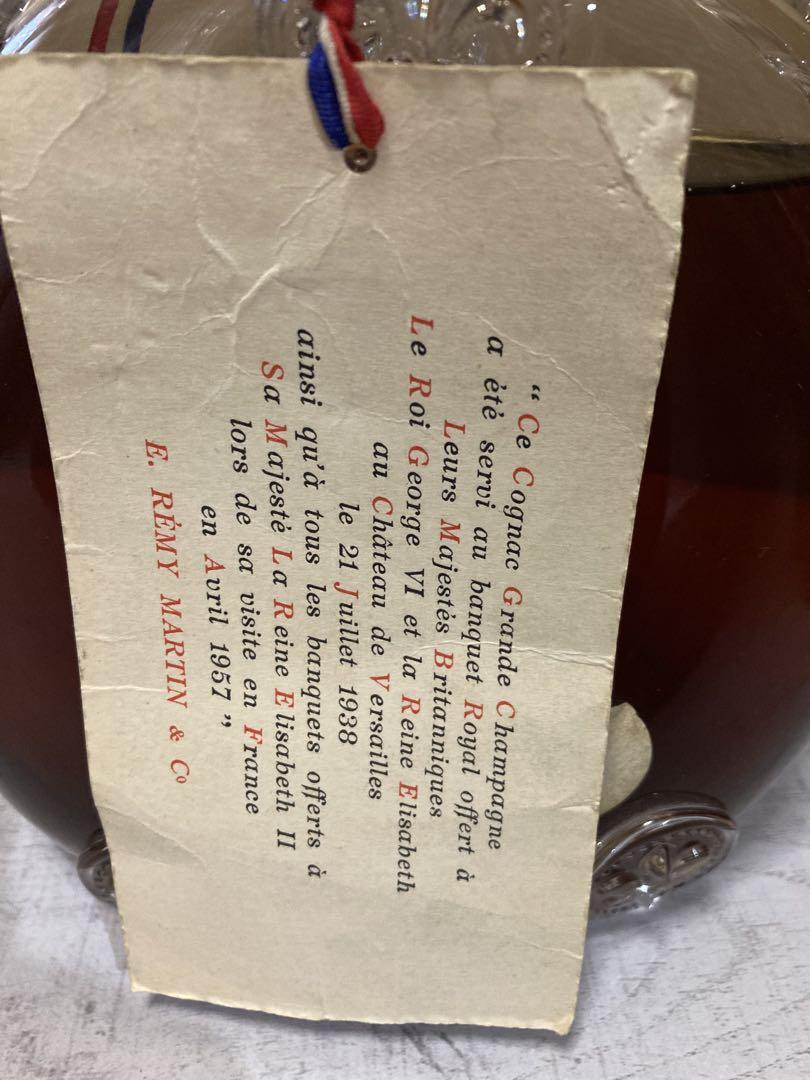 “ Ce Cognac Grande Champagne
a été servi au banquet Royal offert à
Leurs Majestés Britanniques
Le Roi George VI et la Reine Elisabeth
au Château de Versailles
le 21 Juillet 1938
ainsi qu'à tous les banquets offerts à
Sa Majesté La Reine Elisabeth II
lors de sa visite en France
en Avril 1957 ”
E. RÉMY MARTIN & Cº